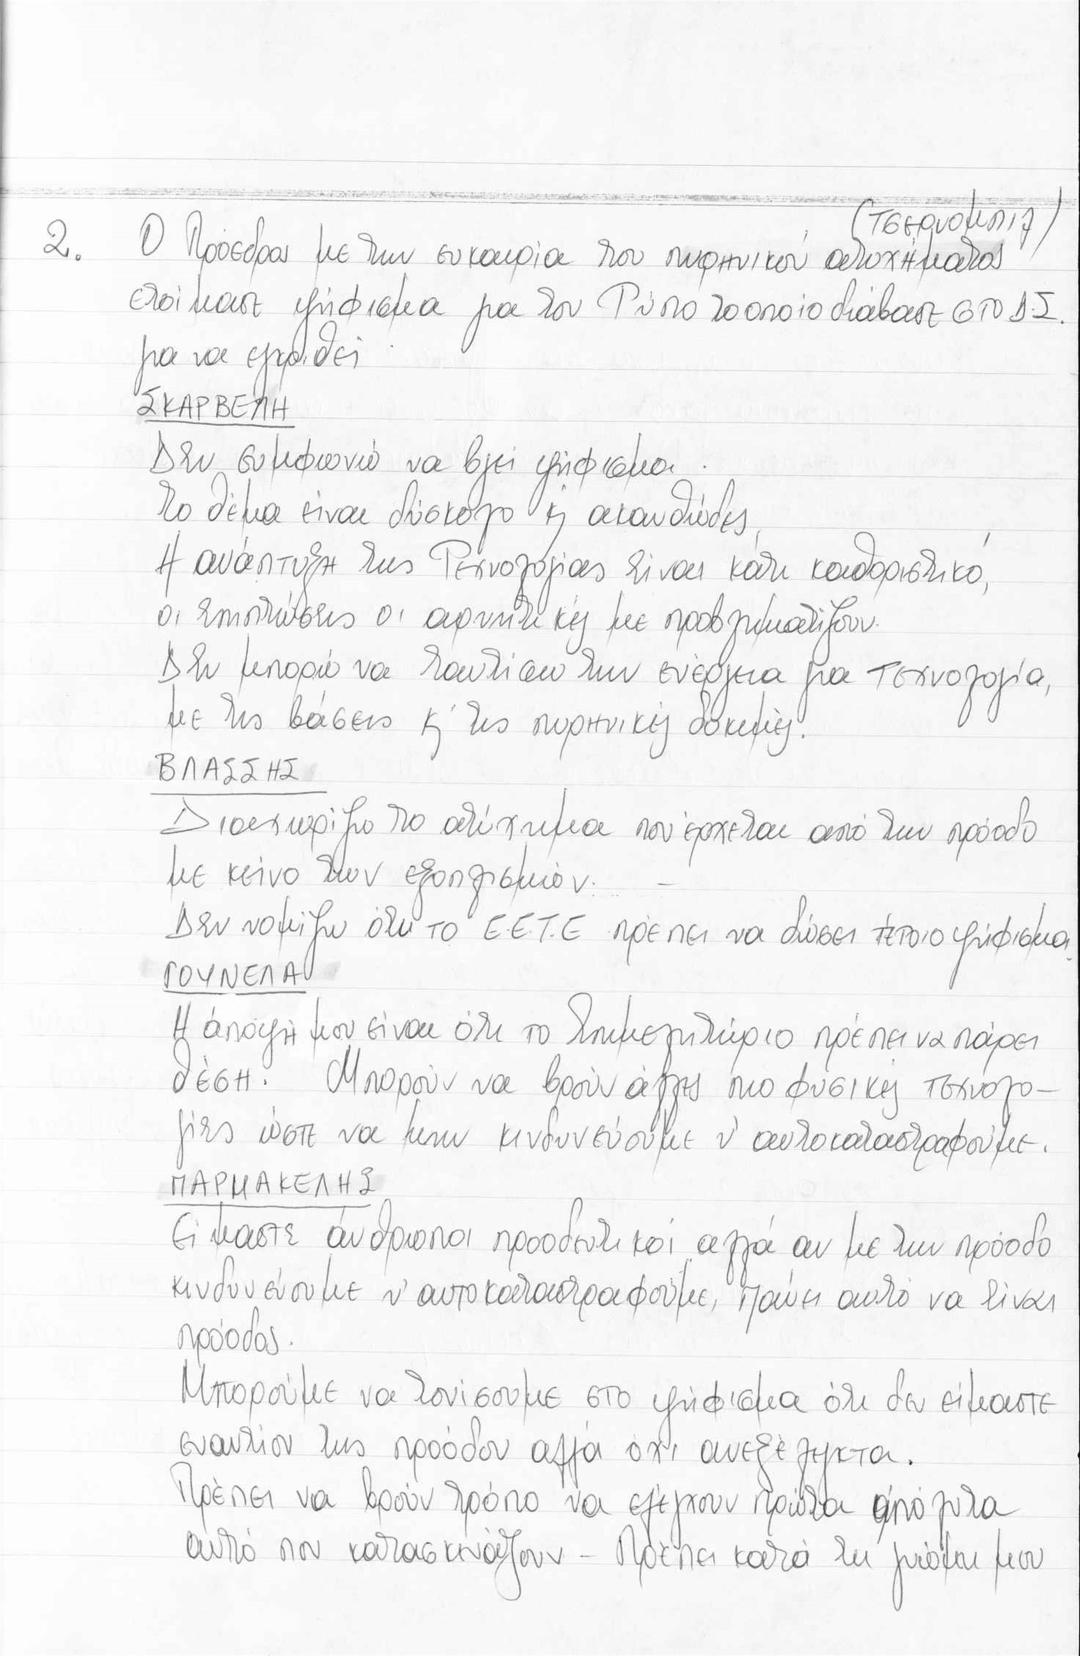 (Τσερνομπιλ)
2. Ο Πρόεδρος με την ευκαιρία του πυρηνικού ατυχήματος
ετοίμασε ψήφισμα για τον Τύπο το οποίο διάβασε στο Δ.Σ.
για να εγκριθεί.
ΣΚΑΡΒΕΛΗ
Δεν συμφωνώ να βγεί ψήφισμα.
Το θέμα είναι δύσκολο κ' ακανθώδες,
Η ανάπτυξη της Τεχνολογίας είναι κάτι καθοριστικό,
οι επιπτώσεις οι αρνητικές με προβληματίζουν.
Δεν μπορώ να ταυτίσω την ενέργεια για τεχνολογία,
με τις βάσεις κ' τις πυρηνικές δοκιμές.
ΒΛΑΣΣΗΣ
Διαχωρίζω το ατύχημα που έρχεται από την πρόοδο
με κείνο των εξοπλισμών. –
Δεν νομίζω ότι το Ε.Ε.Τ.Ε πρέπει να δώσει τέτοιο ψήφισμα.
ΓΟΥΝΕΛΑ
Η άποψή μου είναι ότι το Επιμελητήριο πρέπει να πάρει
θέση. Μπορούν να βρούν άλλες πιο φυσικές τεχνολο-
γίες ώστε να μην κινδυνεύουμε ν' αυτοκαταστραφούμε.
ΠΑΡΜΑΚΕΛΗΣ
Είμαστε άνθρωποι προοδευτικοί αλλά αν με την πρόοδο
κινδυνεύουμε ν' αυτοκαταστραφούμε, παύει αυτό να είναι
πρόοδος.
Μπορούμε να τονίσουμε στο ψήφισμα ότι δεν είμαστε
εναντίον της προόδου αλλά όχι ανεξέλεγκτα.
Πρέπει να βρούν τρόπο να ελέγχουν πρώτα απόλυτα
αυτό που κατασκευάζουν – Πρέπει κατά τη γνώμη μου